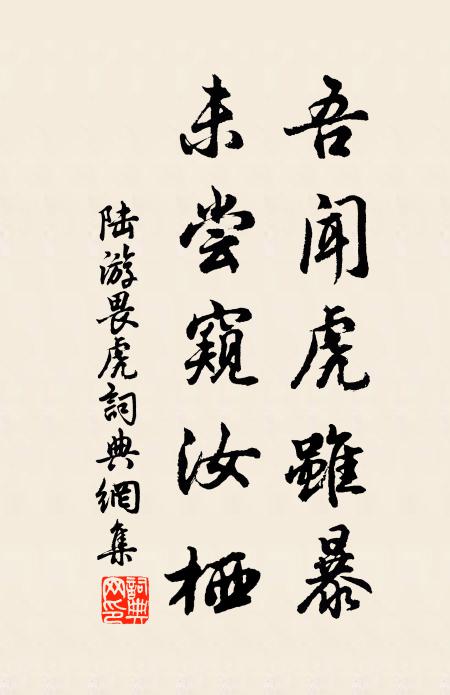 吾闻虎雖暴
未尝窺汝栖
陆游畏虎詞典網集
詞典网印